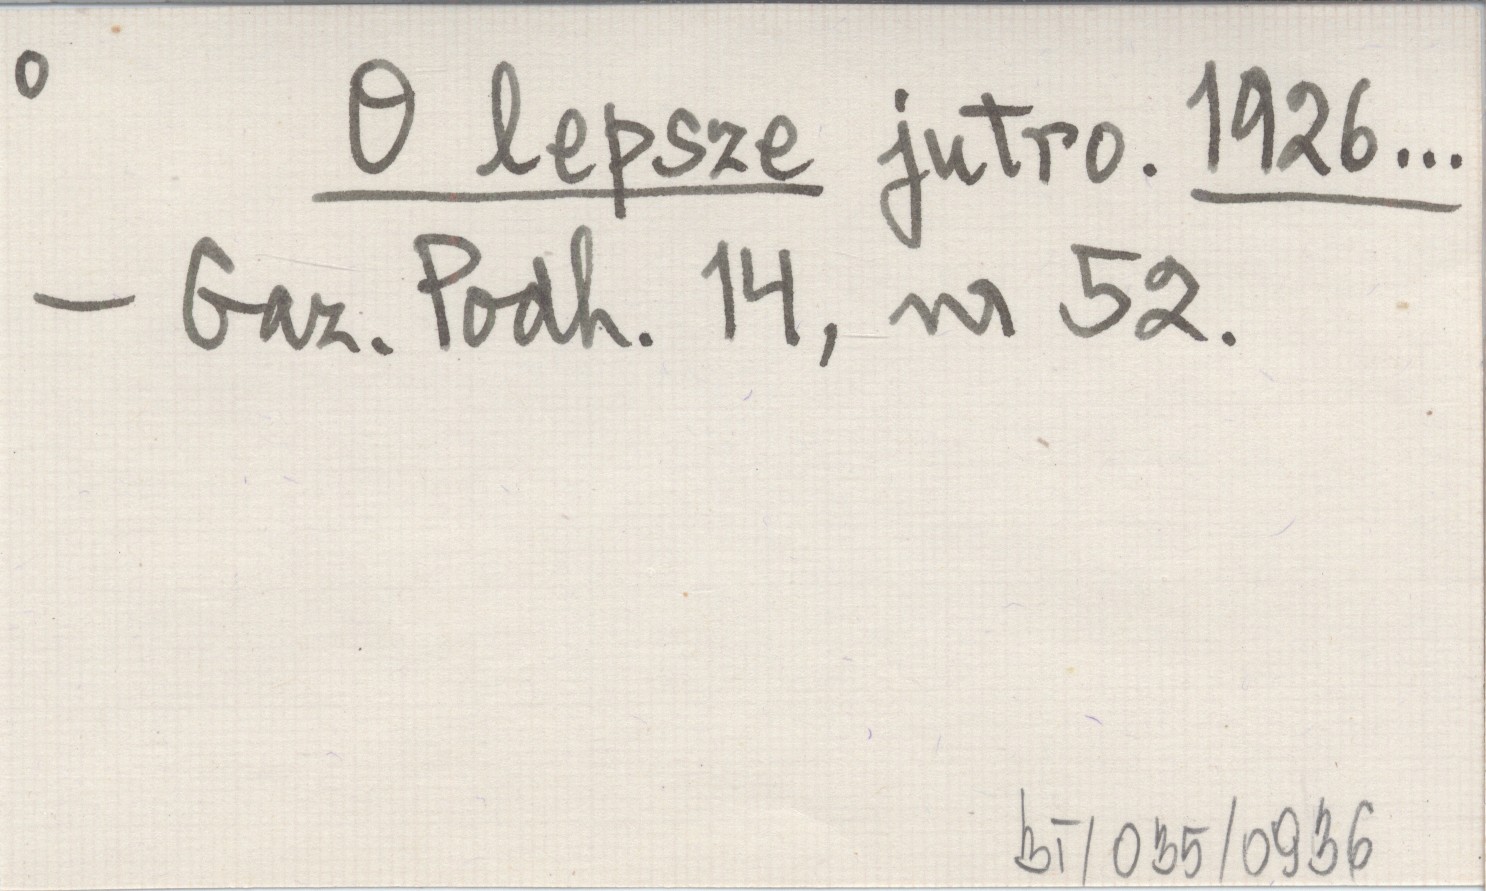 o O lepsze jutro. 1926...
— Gaz. Podh. 14, nr 52.
BT/035/0936